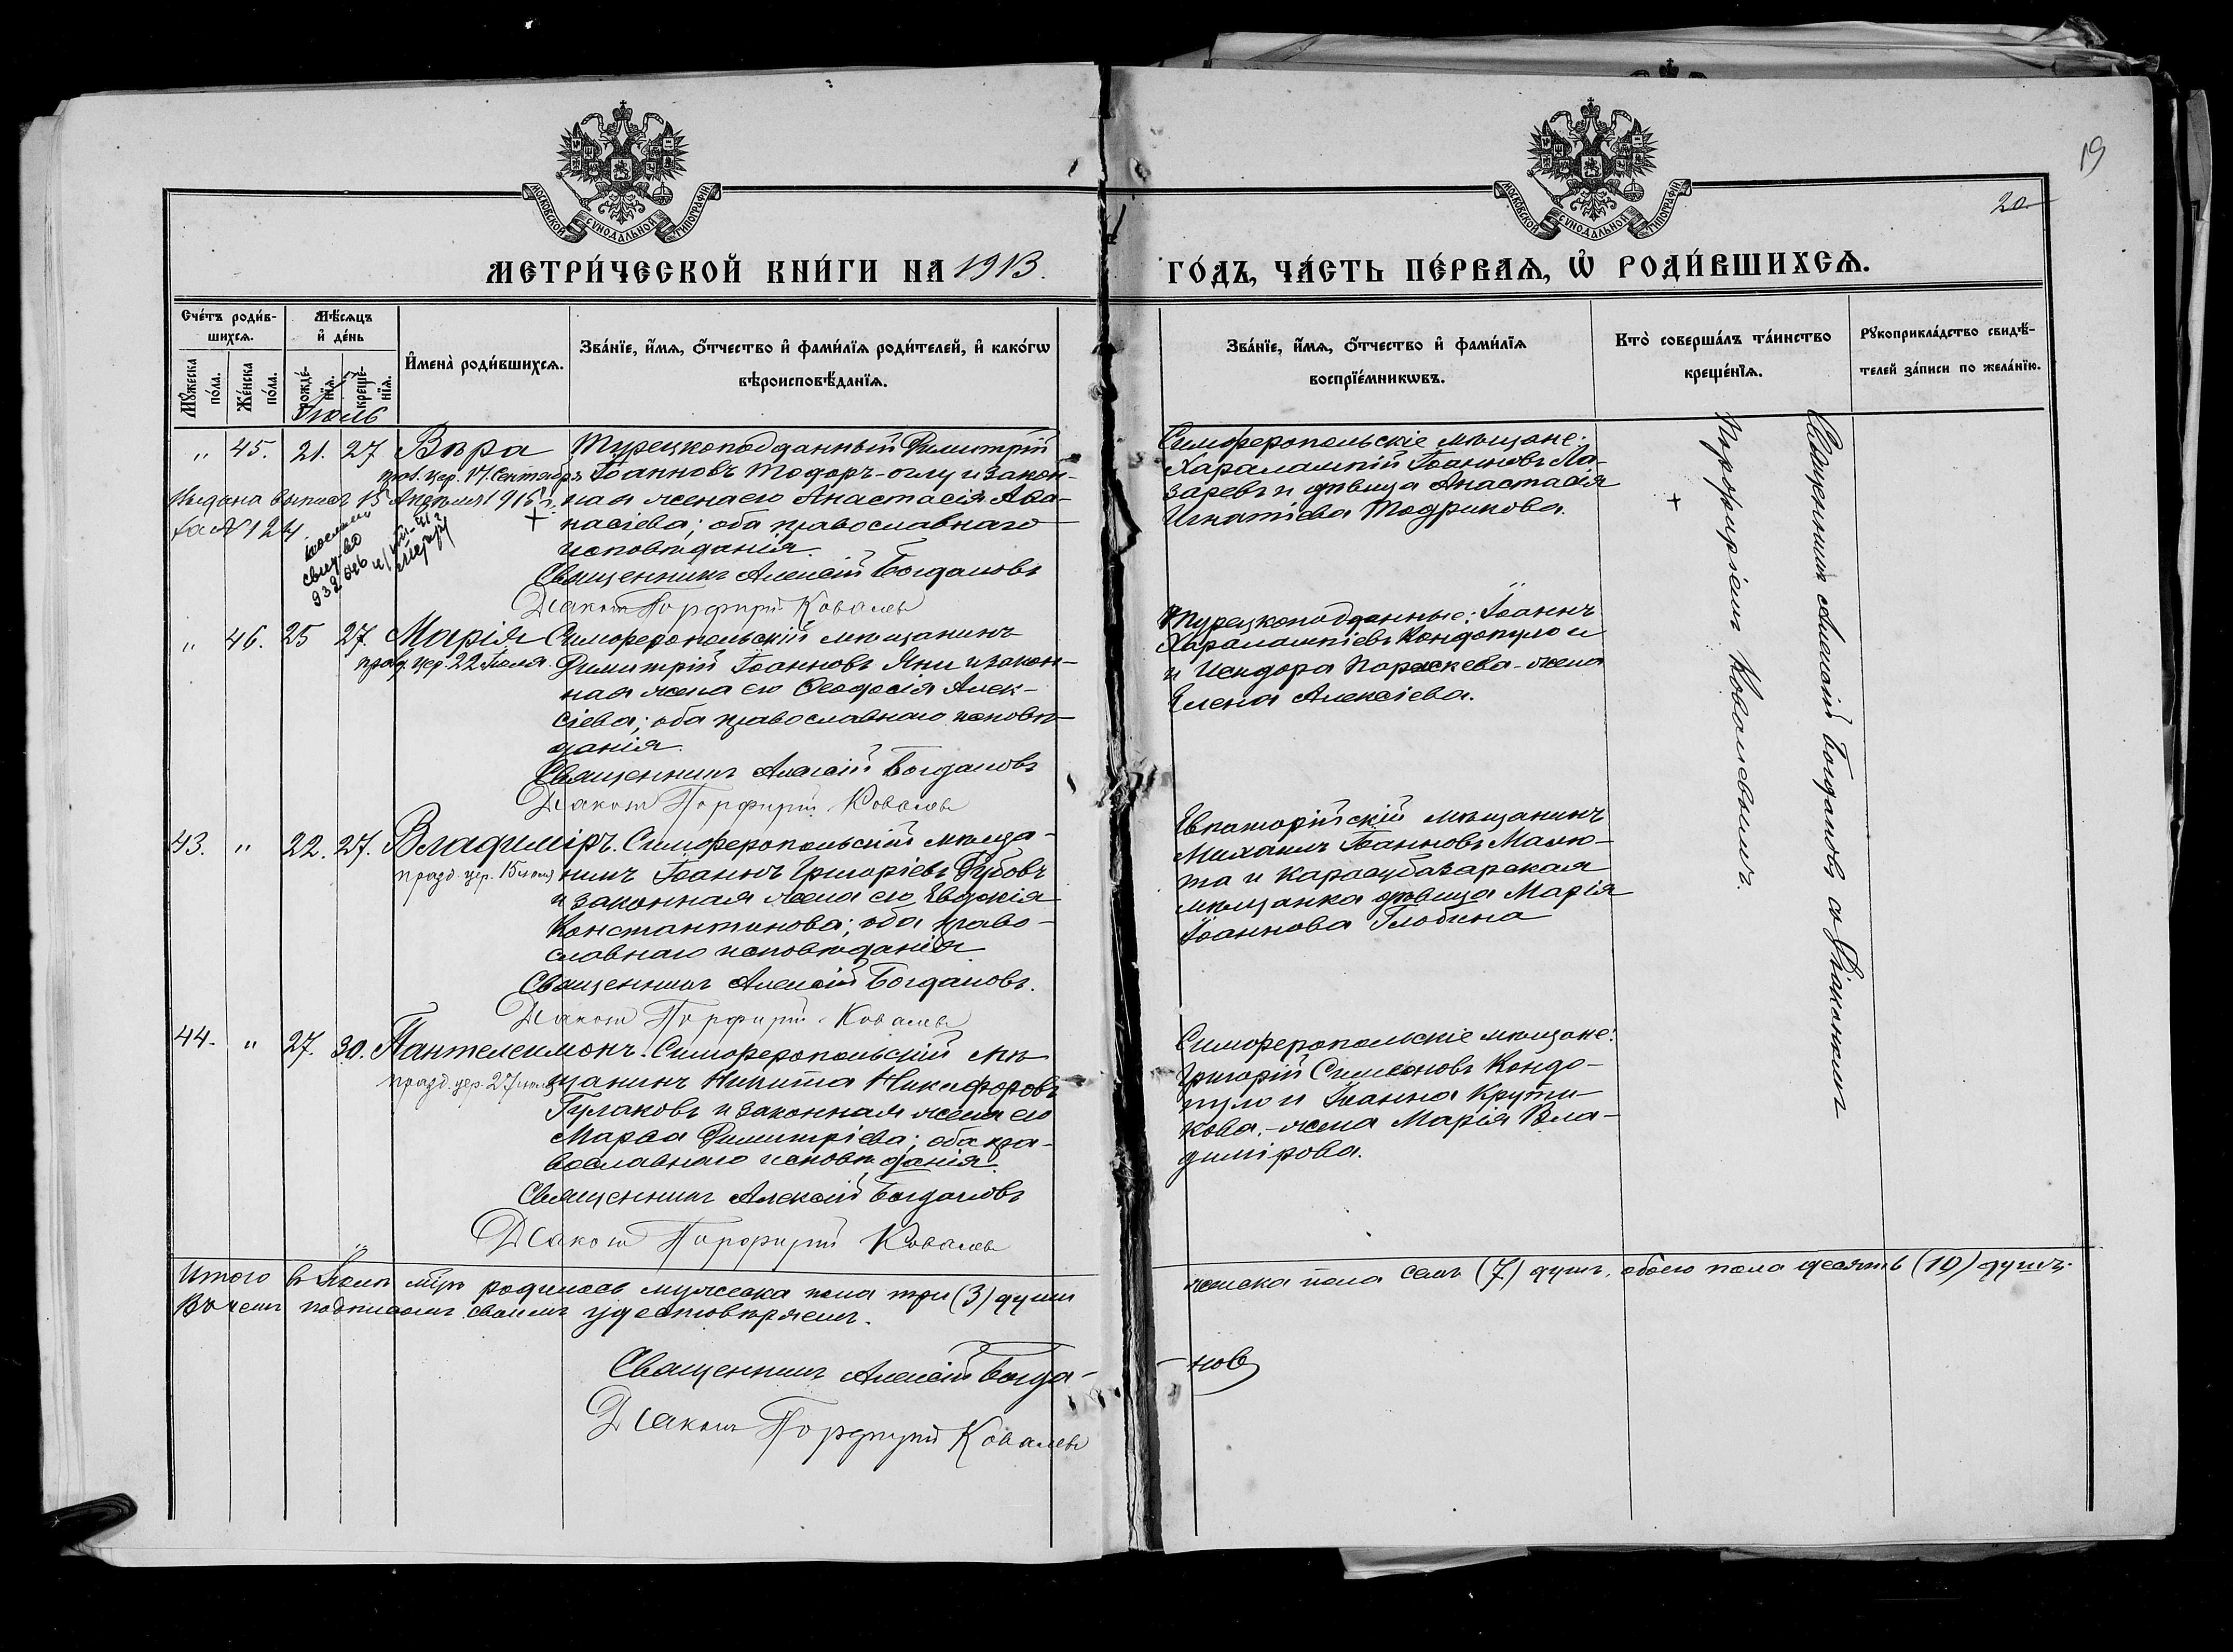 19
20
МОСКОВСКОЙ СУНОДАЛЬНОЙ ТИПОГРАФІИ
МОСКОВСКОЙ СУНОДАЛЬНОЙ ТИПОГРАФІИ
МЕТРИ́ЧЕСКОЙ КНИ́ГИ НА 1913.
ГО́ДЪ, ЧА́СТЬ ПЕ́РВАѦ, Ѡ҆ РОДИ́ВШИХСѦ.
Сче́тъ роди́в-
шихсѧ.
Мꙋ́жеска по́ла.
Же́нска по́ла.
Мѣ́сѧцъ
и҆ де́нь
рожде́-
нїѧ.
креще́-
нїѧ.
И҆мена̀ роди́вшихсѧ.
Зва́нїе, и҆́мѧ, ѻ҆́тчество и҆ фами́лїѧ роди́телей, и҆ како́гѡ
вѣроисповѣ́данїѧ.
Зва́нїе, и҆́мѧ, ѻ҆́тчество и҆ фами́лїѧ
воспрїе́мникѡвъ.
Кто̀ соверша́лъ та́инство
креще́нїѧ.
Рꙋкоприкла́дство свидѣ́-
телей за́писи по жела́нїю.
Іюль
" 45. 21. 27 Вѣра
цер. 17. Сентября
Выдана выпись 15 Апрѣля 1916 г.
за № 124
Турецкоподданный Димитрій
Іоанновъ Тодоръ-оглу и закон-
ная жена его Анастасія Аѳа-
насіева; оба православнаго
исповѣданія.
Священникъ Алексій Богдановъ
Діаконъ Порфирій Ковалевъ
Симферопольскіе мѣщане:
Харалампій Іоанновъ Ла-
заревъ и дѣвица Анастасія
Игнатіева Тодрикова.
Священникъ Алексій Богдановъ съ Діакономъ
Порфиріемъ Ковалевымъ.
" 46. 25 27. Марія
празд. цер. 22 Іюля.
Симферопольскій мѣщанинъ
Димитрій Іоанновъ Яни и закон-
ная жена его Ѳеодосія Алек-
сіева; оба православнаго исповѣ-
данія.
Священникъ Алексій Богдановъ
Діаконъ Порфирій Ковалевъ
Турецкоподданные: Іоаннъ
Харалампіевъ Кондопуло и
и Исидора Параскева - жена
Елена Алексіева.
43. " 22. 27. Владиміръ.
празд. цер. 15 июля
Симферопольскій мѣща-
нинъ Іоаннъ Григоріевъ Губовъ
и законная жена его Евдокія
Константинова; оба право-
славнаго исповѣданія.
Священникъ Алексій Богдановъ.
Діаконъ Порфирій Ковалевъ
Евпаторійскій мѣщанинъ
Михаилъ Іоанновъ Малю-
та и Карасубазарская
мѣщанка дѣвица Марія
Іоаннова Глобина
44. " 27. 30. Пантелеимонъ.
празд. цер. 27 июля
Симферопольскій мѣ-
щанинъ Никита Никифоровъ
Гулаковъ и законная жена его
Марѳа Димитріева; оба пра-
вославнаго исповѣданія.
Священникъ Алексій Богдановъ
Діаконъ Порфирій Ковалевъ
Симферопольскіе мѣщане:
Григорій Симеоновъ Кондо-
пуло и Іоанна Крути-
кова - жена Марія Вла-
димірова.
Итого въ Іюлѣ мцѣ родилось мужеска пола три (3) души
женска пола семь (7) душъ, обоего пола десять (10) душъ.
Въ чемъ подписомъ своимъ удостовѣряемъ.
Священникъ Алексій Богда-
-новъ
Діаконъ Порфирій Ковалевъ